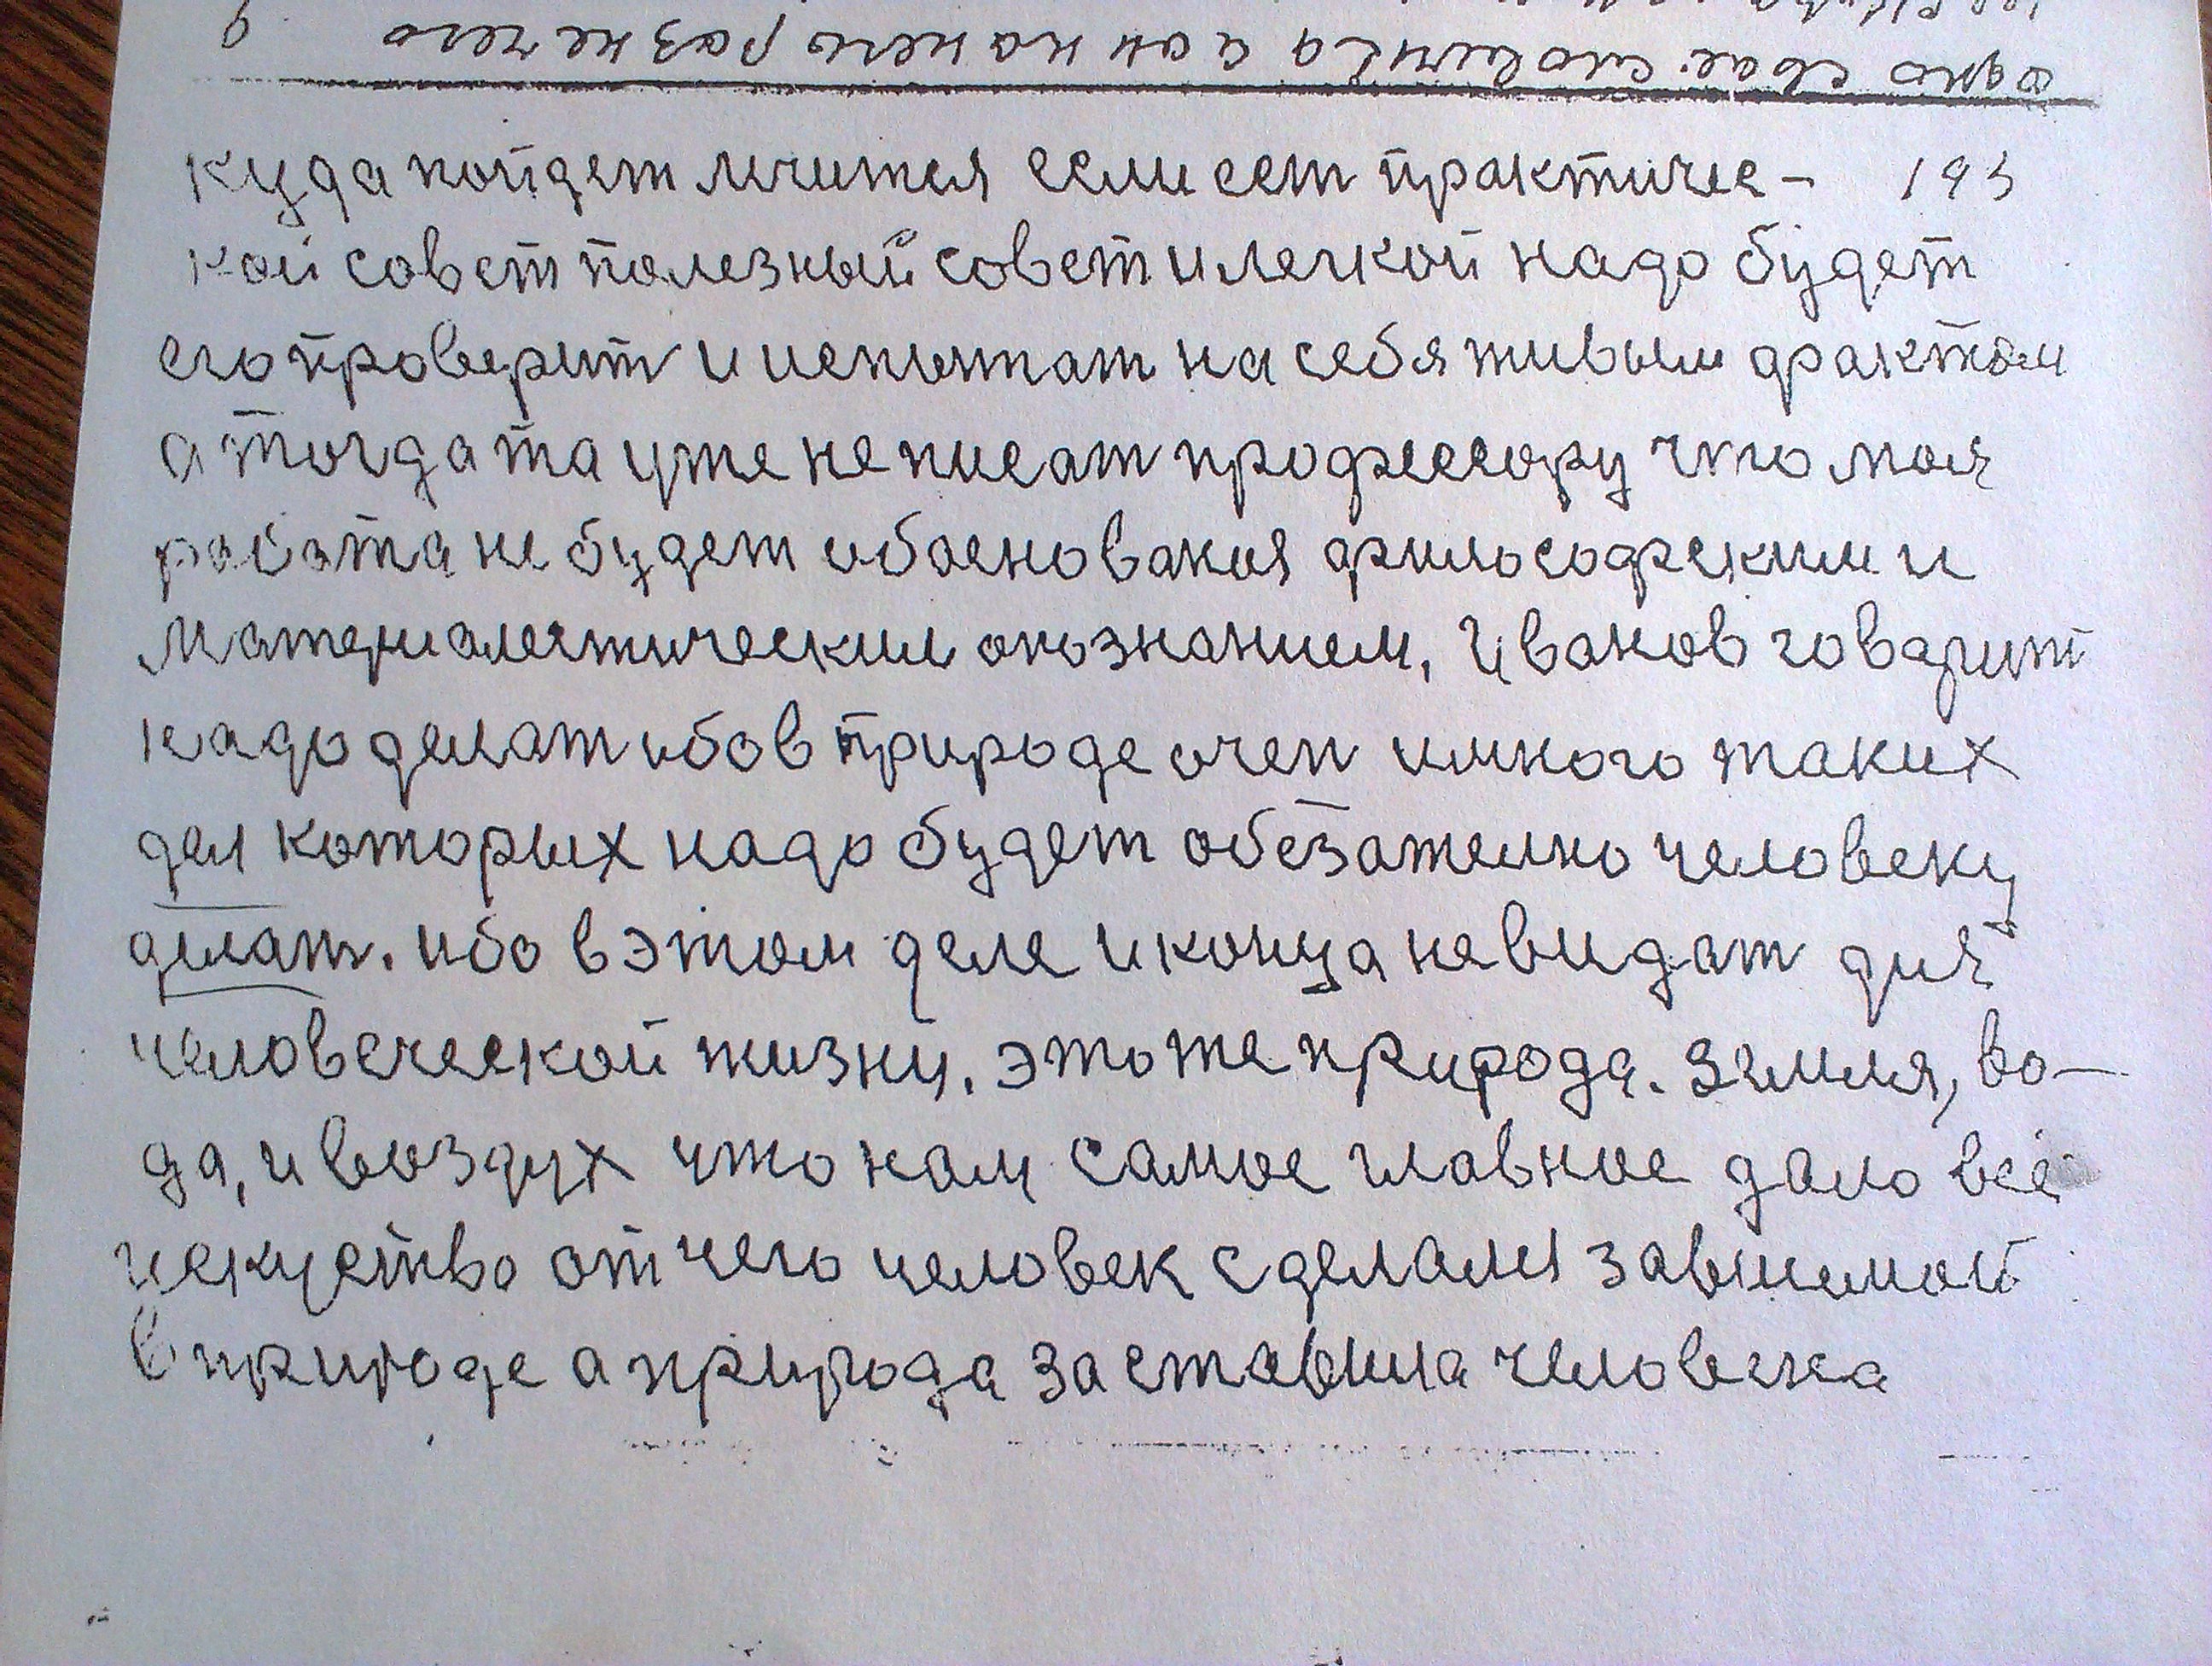 одно свае словичка и он на него раз не чего
куда пойдет лечится если ест практиче- 193
кой совет полезный совет и легкой надо будет
его проверит и испытат на себя живым фактом
а тогда та уже не писат профессору что моя
работа не будет обоснованоя философским и
Материалестическим опознанием. Иванов говарит
надо делат ибо в природе очен и много таких
дел которых надо будет обезателно человеку
делат. ибо в этом деле и конца невидат для
человеческой жизни. это же природа. Земля, во-
да, и воздух что нам самое главное дало все
искуство от чего человек сделался зависимой
в природе а природа заставила человека